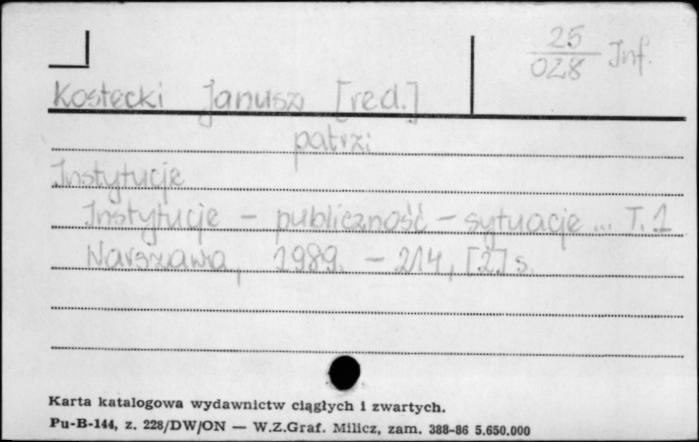 25
028 Inf.
Kostecki Janusz [red.]
patrzi
Instytucje
Instytucje - publiczność - sytuacje ... T. 1
Warszawa, 1989. - 214, [2] s.
Karta katalogowa wydawnictw ciągłych i zwartych.
Pu-B-144, z. 228/DW/ON — W.Z.Graf. Milicz, zam. 388-86 5.650.000